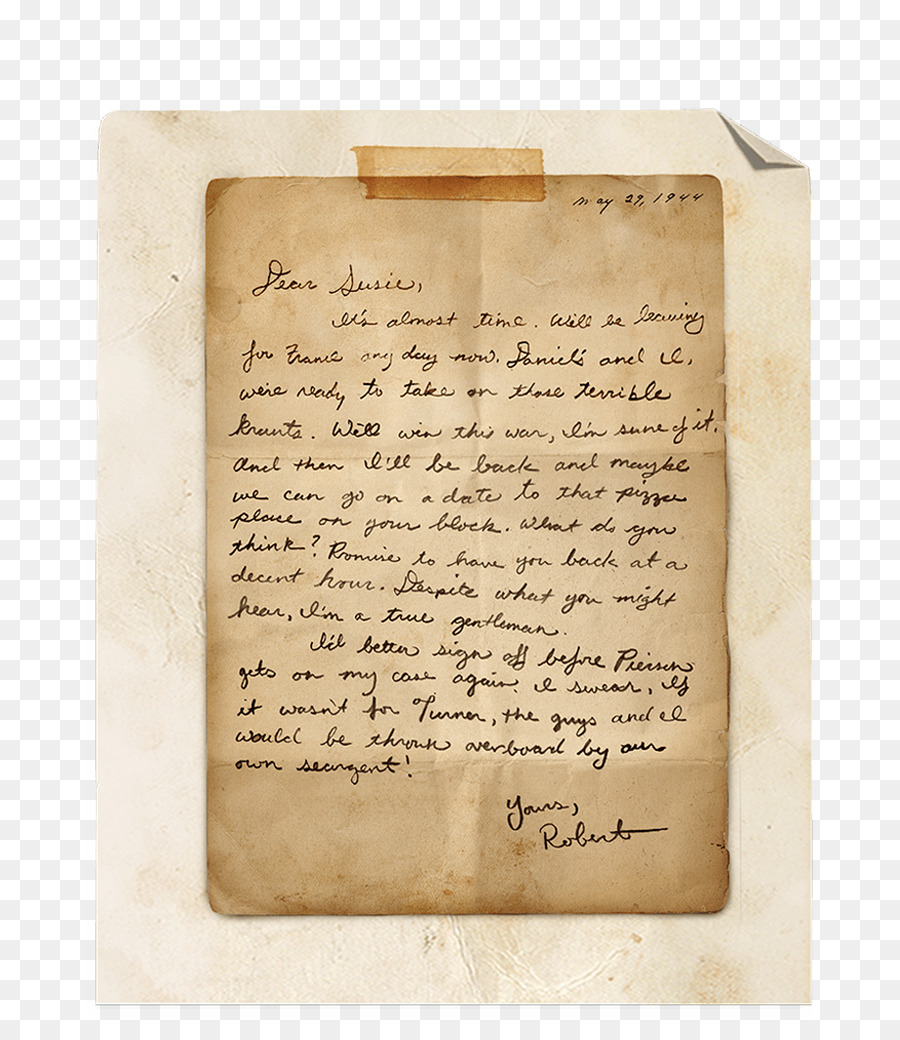 May 29, 1944
Dear Susie,
It's almost time. We'll be leaving
for France any day now. Daniel's and I,
we're ready to take on those terrible
krauts. We'll win this war, I'm sure of it.
And then I'll be back and maybe
we can go on a date to that pizza
place on your block. What do you
think? Promise to have you back at a
decent hour. Despite what you might
hear, I'm a true gentleman.
I'd better sign off before Pierson
gets on my case again. I swear, if
it wasn't for Turner, the guys and I
would be thrown overboard by our
own seargent!
Yours,
Robert